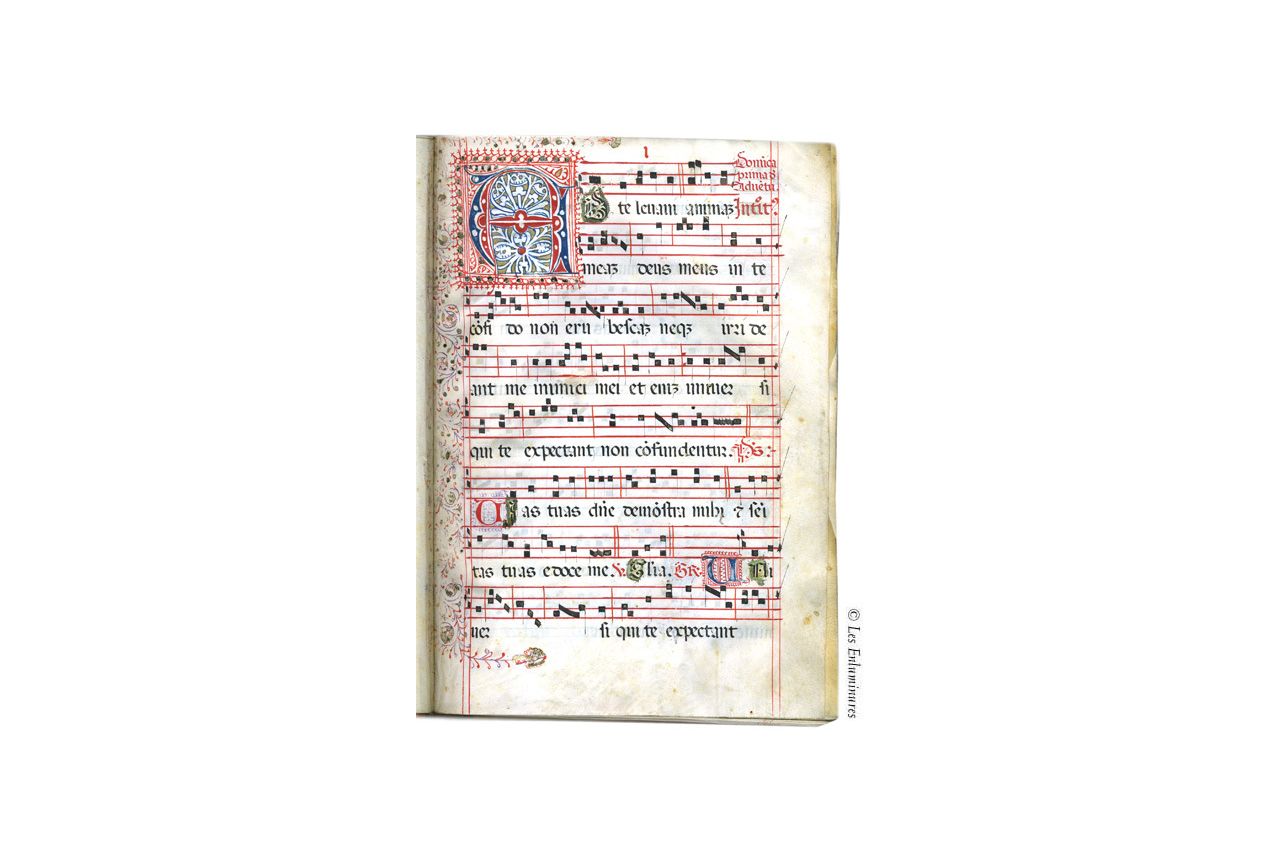 I
Domica
prima d
adventu
A D te levavi animaʒ Introitꝰ
meaʒ deus meus in te
cōfi do non eru bescaʒ neqʒ irri de
ant me inimici mei et eniʒ univer si
qui te expectant non cōfundentur. Ps.
Vias tuas dn̄e demōstra mihi ⁊ semi
tas tuas edoce me. V. Glia. GR. Uni
ver si qui te expectant
© Les Enluminures